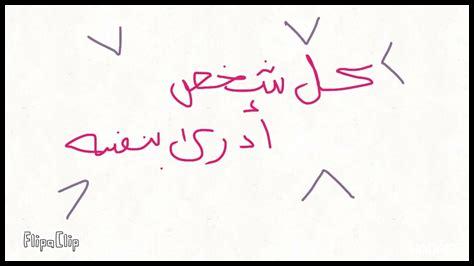 كل شخص
أدرى بنفسه
FlipaClip